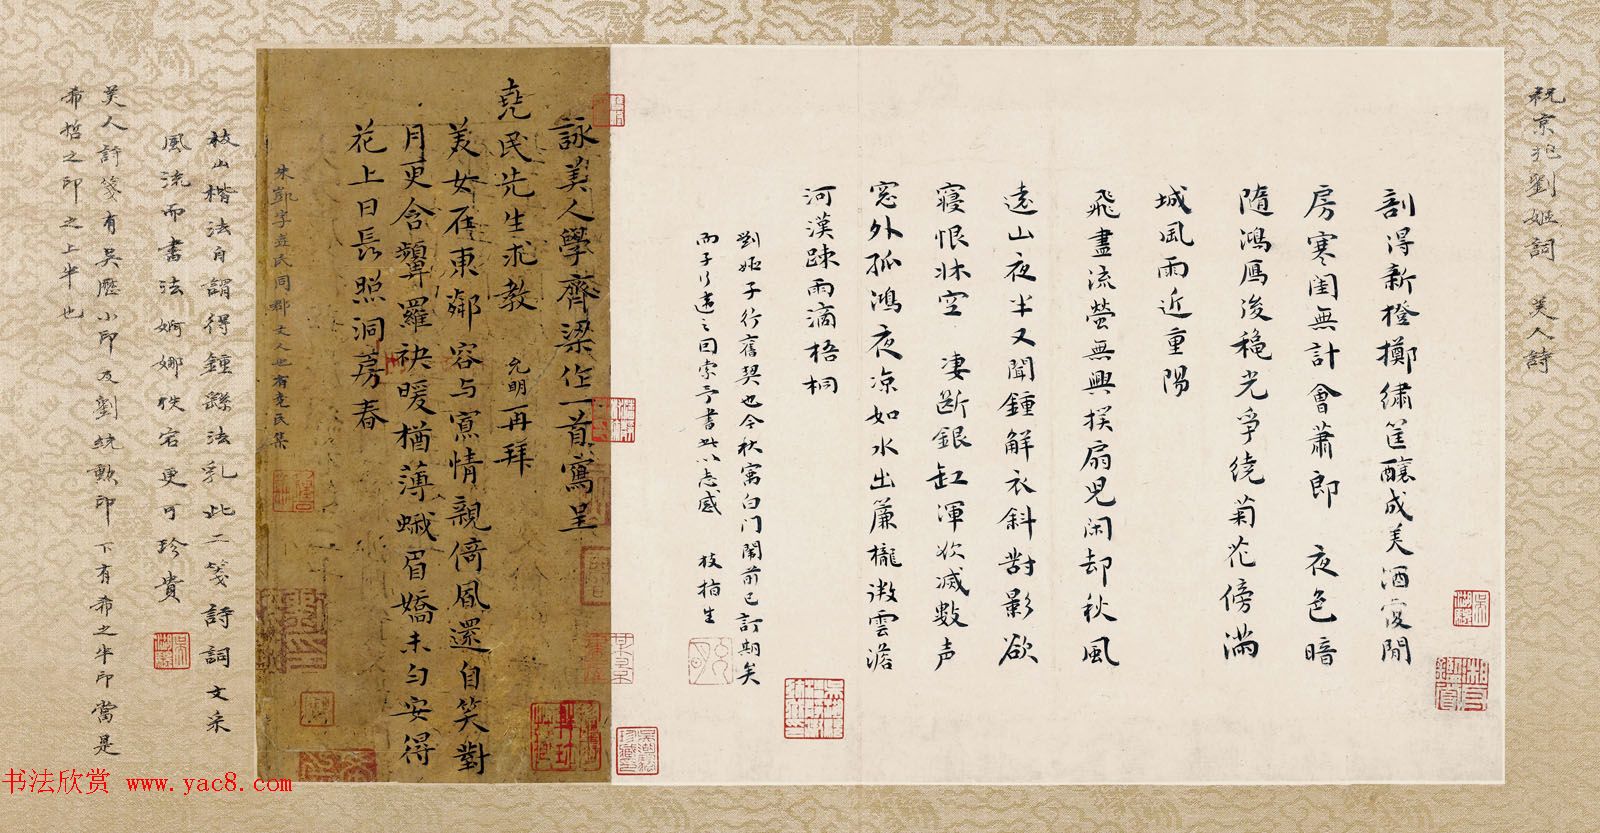 祝京兆劉姬詞 美人詩
剖得新橙擲繡筐釀成美酒復閒
房寒閨無計會蕭郎 夜色暗
隨鴻鴈後穐光爭繞菊花傍滿
城風雨近重陽
飛盡流螢無興撲扇兒閑却秋風
遠山夜半又聞鍾解衣斜對影欲
寢恨牀空 凄斷銀缸渾欲滅數声
窓外孤鴻夜凉如水出簾櫳微雲澹
河漢踈雨滴梧桐
劉姬子行舊契也今秋寓白门闈前已訂期矣
而子行遣之因索予書此以志感 枝指生
詠美人學齊梁作一首寫呈
堯民先生求教 允明再拜
美女在東鄰容与寫情親倚風還自笑對
月更含顰羅袂暖猶薄蛾眉嬌未勻安得
花上日長照洞房春
朱凱字堯民同郡文人也有堯民集
枝山楷法自謂得鍾繇法乳此二箋詩詞文采
風流而書法婀娜佚宕更可珍貴
美人詩箋有吳歷小印及劉統勳印下有希之半印當是
希哲之印之上半也
书法欣赏 www.yac8.com